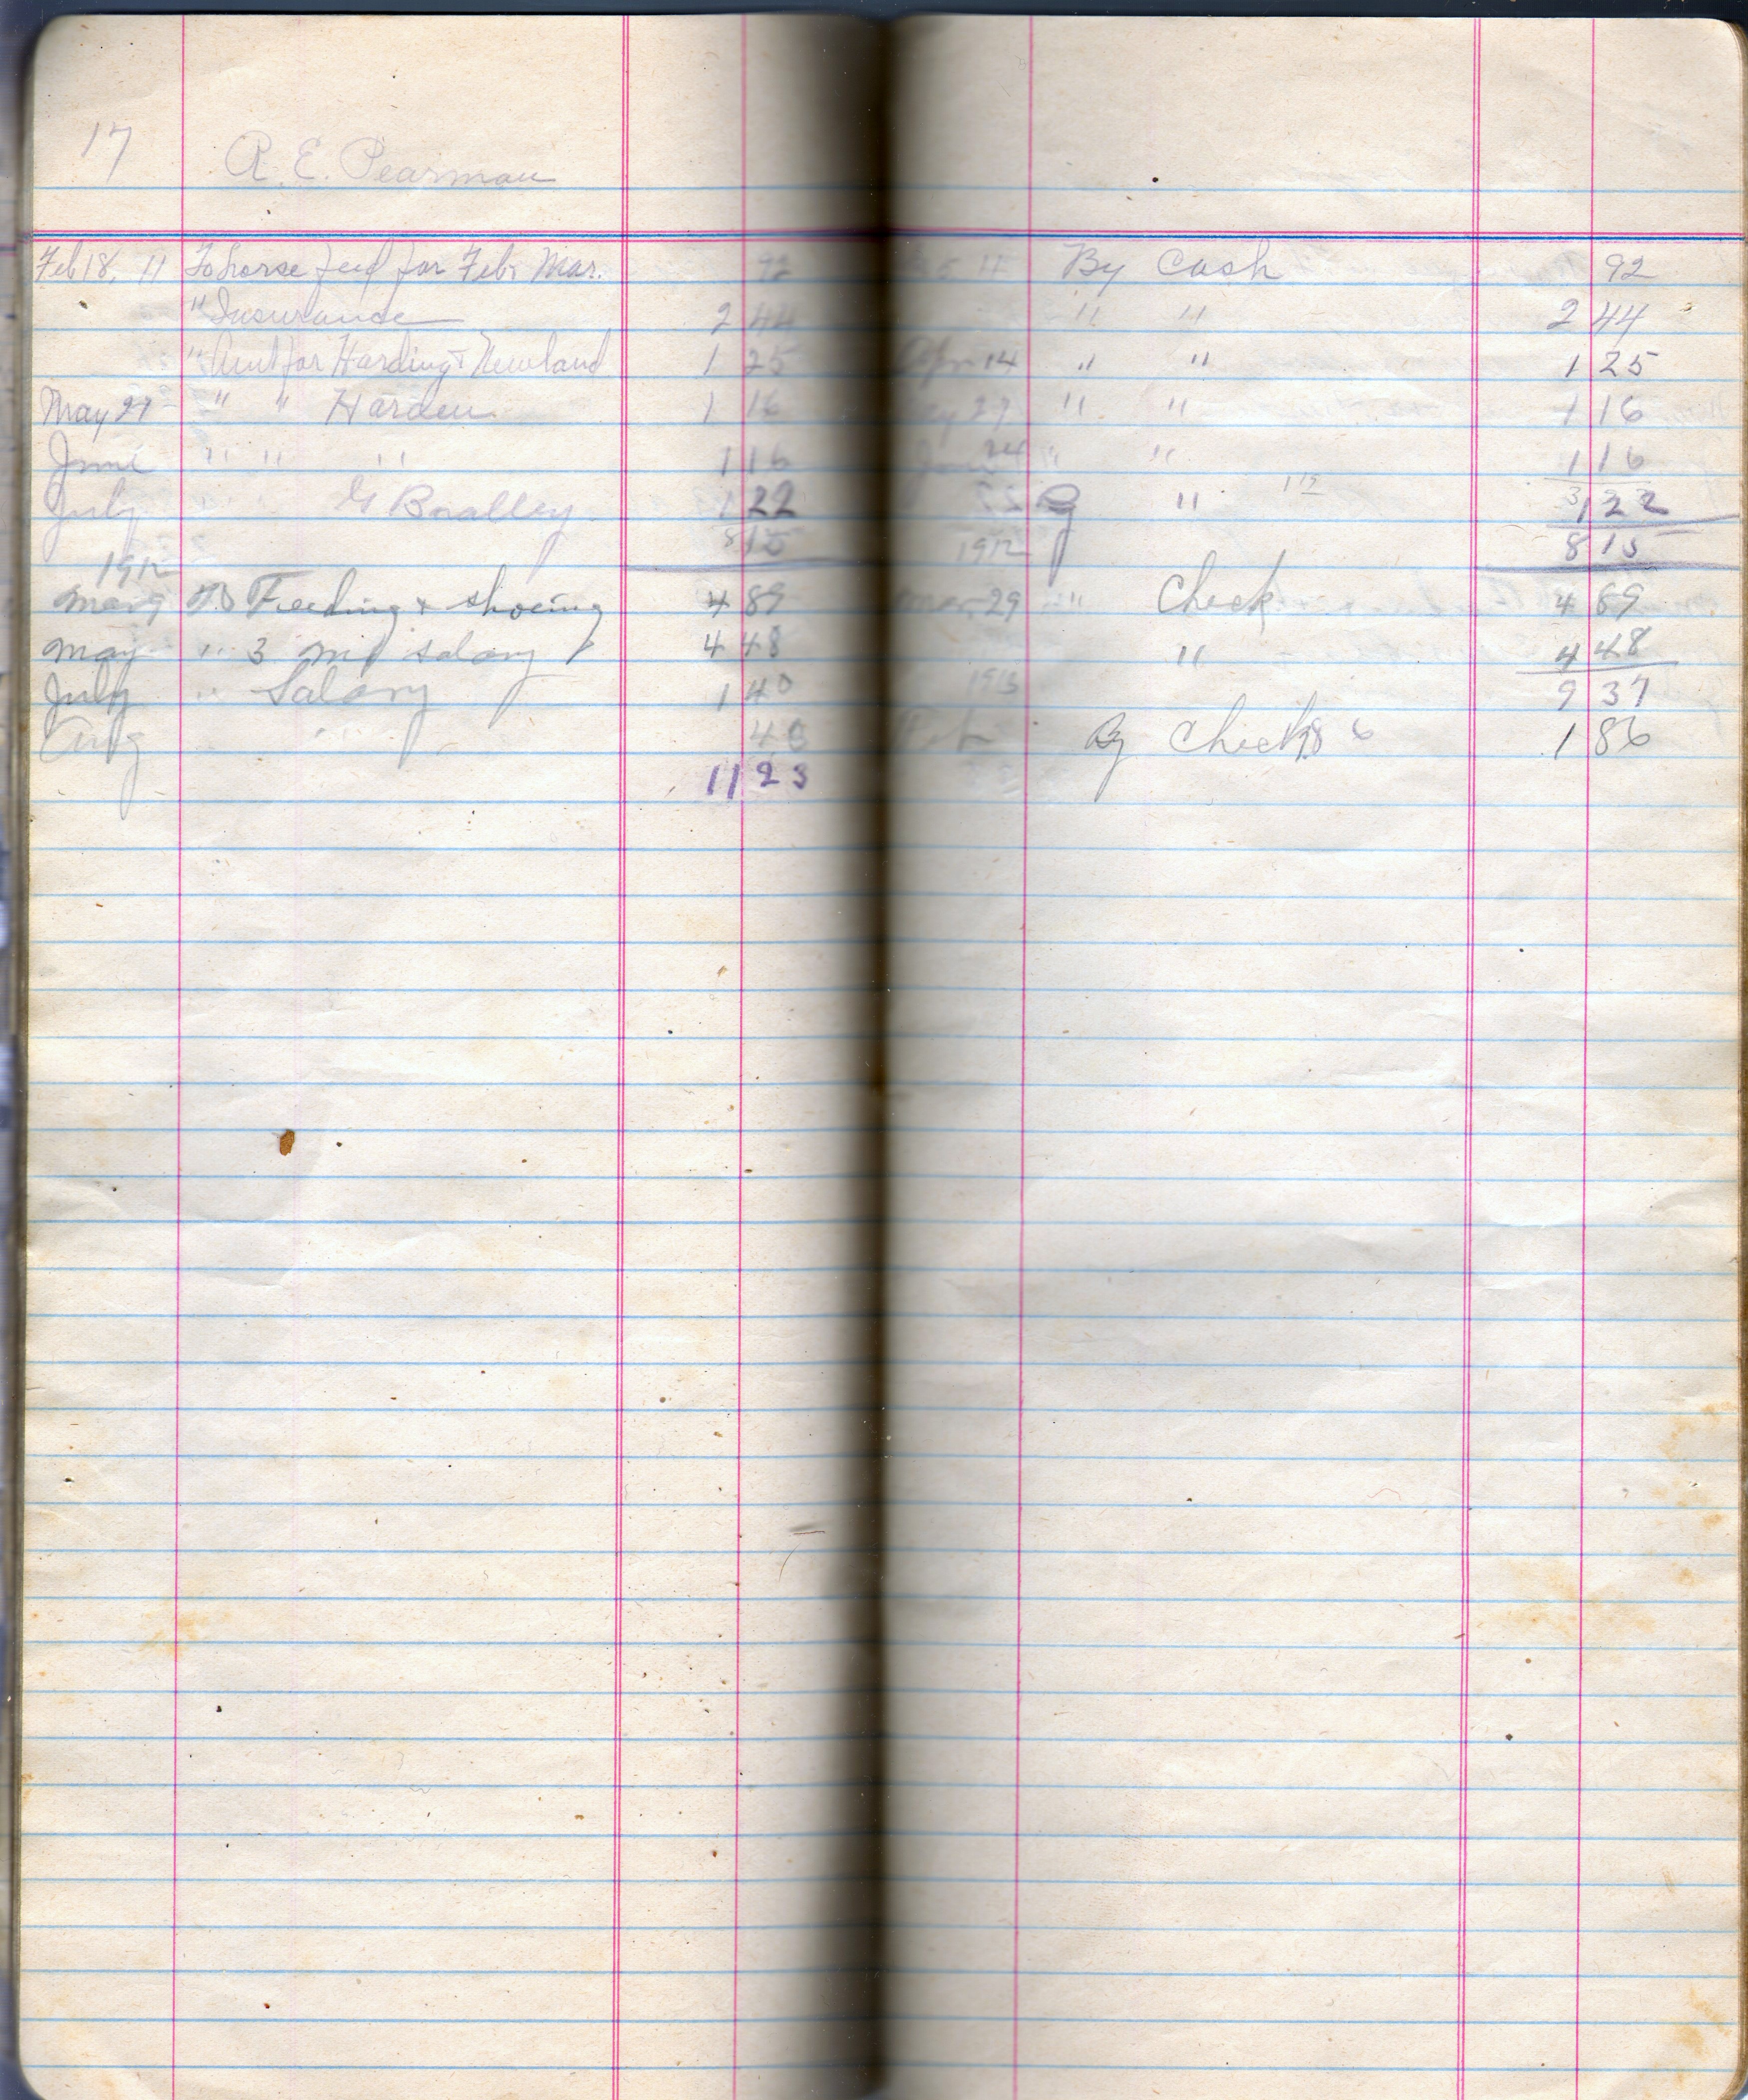 17 R. E. Pearman
Feb 18, 11 To horse feed for Feb & Mar. 92
" Insurance 2 44
" Amt for Harding & Newland 1 25
May 27 " " Harden 1 16
June " " " 1 16
July " G Bralley 1 22
8 15
1912
Mar 9 To Feeding & shoeing 4 89
May " 3 m salary 4 48
July " Salary 1 40
Aug " " 40
11 23
11 By Cash 92
" " 2 44
Apr 14 " " 1 25
27 " " 1 16
24 " " 1 16
By " 1 22
1912 8 15
Mar 29 " Check 4 89
" 4 48
1913 9 37
Feb By Check 1 86